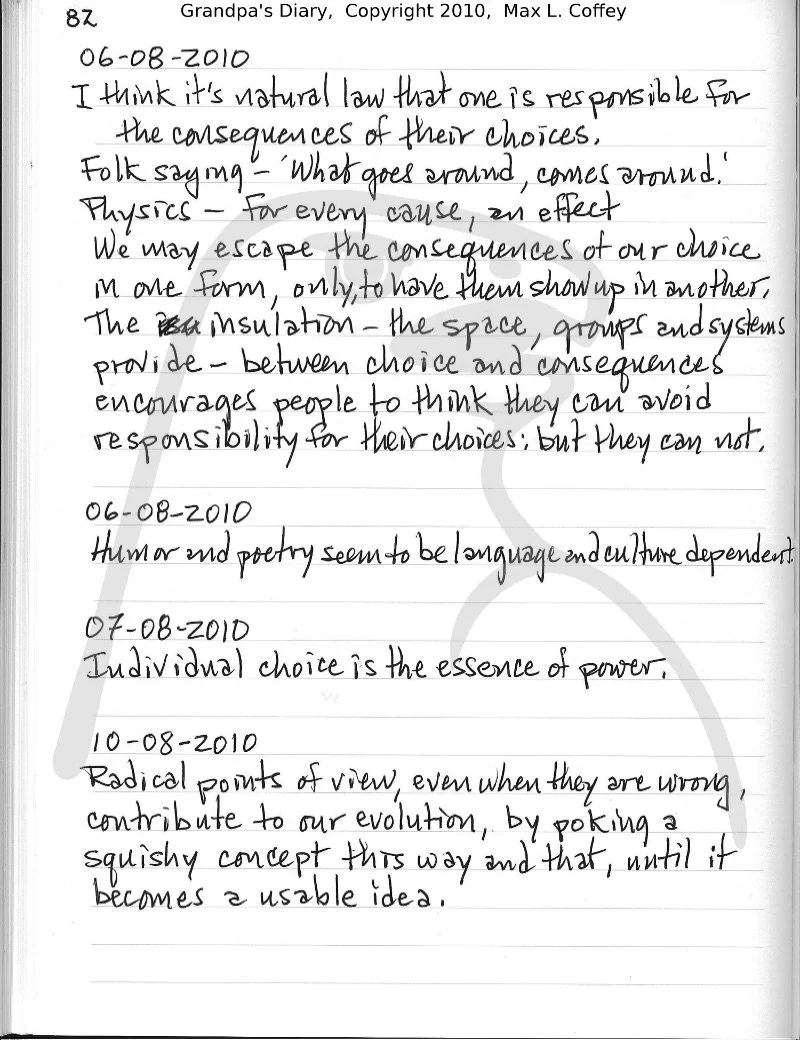 82
Grandpa's Diary, Copyright 2010, Max L. Coffey
06-08-2010
I think it's natural law that one is responsible for
the consequences of their choices.
Folk saying – 'What goes around, comes around.'
Physics – for every cause, an effect
We may escape the consequences of our choice
in one form, only, to have them show up in another.
The insulation – the space, groups and systems
provide – between choice and consequences
encourages people to think they can avoid
responsibility for their choices; but they can not.
06-08-2010
Humor and poetry seem to be language and culture dependent.
07-08-2010
Individual choice is the essence of power.
10-08-2010
Radical points of view, even when they are wrong,
contribute to our evolution, by poking a
squishy concept this way and that, until it
becomes a usable idea.